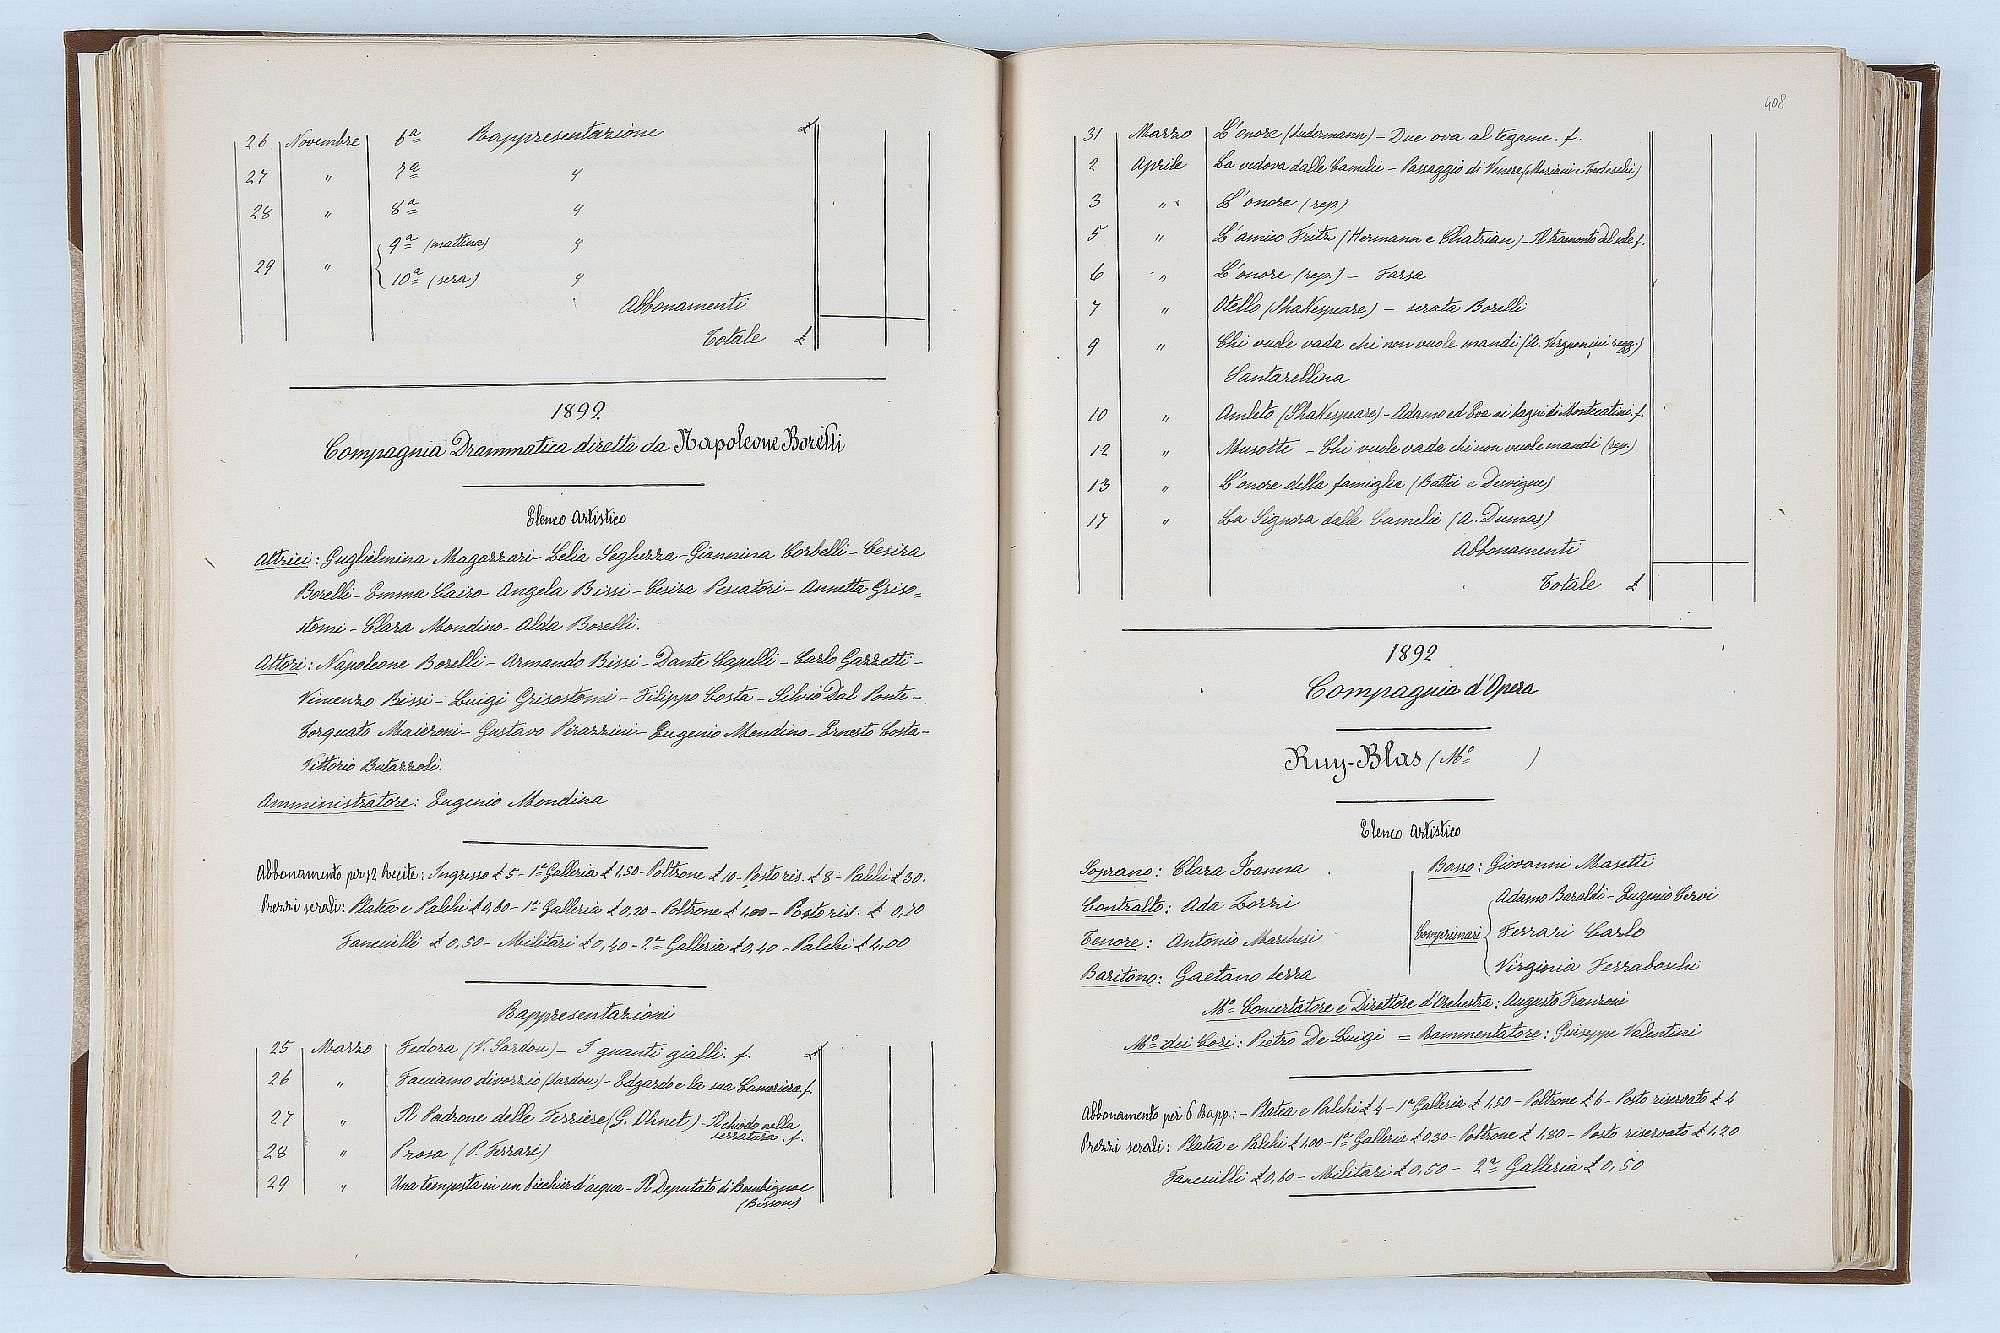 26 Novembre 6ª Rappresentazione £
27 " 7ª "
28 " 8ª "
29 " 9ª (mattina) "
10ª (sera) "
Abbonamenti
Totale £
1892
Compagnia Drammatica diretta da Napoleone Borelli
Elenco Artistico
Attrici: Guglielmina Magazzari - Lelia Seghezza - Giannina Corbelli - Cesira
Borelli - Emma Cairo - Angela Bissi - Cesira Pescatori - Annetta Griso=
stomi - Clara Mondino - Alda Borelli.
Attori: Napoleone Borelli - Armando Bissi - Dante Capelli - Carlo Gazzotti -
Vincenzo Bissi - Luigi Grisostomi - Filippo Costa - Silvio Dal Ponte -
Torquato Maieroni - Gustavo Pirazzini - Eugenio Mondino - Ernesto Costa -
Vittorio Butazzoli.
Amministratore: Eugenio Mondina
Abbonamento per 12 Recite: Ingresso £ 5 - 1ª Galleria £ 1,50 - Poltrone £ 10 - Posto ris. £ 8 - Palchi £ 30.
Prezzi serali: Platea e Palchi £ 0,80 - 1ª Galleria £ 0,20 - Poltrone £ 1.00 - Posto ris. £ 0,70
Fanciulli £ 0,50 - Militari £ 0,40 - 2ª Galleria £ 0,40 - Palchi £ 4.00
Rappresentazioni
25 Marzo Fedora (V. Sardou) - I guanti gialli. f. £
26 " Facciamo divorzio (Sardou) - Edgardo e la sua Cameriera f.
27 " Il Padrone delle Ferriere (G. Ohnet) - Il chiodo nella
serratura. f.
28 " Prosa (P. Ferrari)
29 " Una tempesta in un bicchier d'acqua - Il Deputato di Bombignac
(Bisson)
408
31 Marzo L'onore (Sudermann) - Due ova al tegame. f.
2 Aprile La vedova dalle Camelie - Passaggio di Venere (Moziani e Tedeschi)
3 " L'onore (rep.)
5 " L'amico Fritz (Hermann e Chatrian) - Il tramonto del sole f.
6 " L'onore (rep.) - Farsa
7 " Otello (Shakespeare) - serata Borelli
9 " Chi vuole vada chi non vuole mandi (A. Vergnanini regg.)
Santarellina
10 " Amleto (Shakespeare) - Adamo ed Eva ai bagni di Montecatini. f.
12 " Musotte - Chi vuole vada chi non vuole mandi (rep.)
13 " L'onore della famiglia (Battei e Desvigne)
17 " La Signora dalle Camelie (A. Dumas)
Abbonamenti
Totale £
1892
Compagnia d'Opera
Ruy-Blas (Mº )
Elenco Artistico
Soprano: Clara Joanna
Contralto: Ada Zorzi
Tenore: Antonio Marchesi
Baritono: Gaetano Serra
Basso: Giovanni Masetti
Comprimari Adamo Baraldi - Eugenio Cervi
Ferrari Carlo
Virginia Ferraboschi
Mº Concertatore e Direttore d'Orchestra: Augusto Franzoni
Mº dei Cori: Pietro De Luigi = Rammentatore: Guiseppe Valentini
Abbonamento per 6 Rapp.: - Platea e Palchi £ 4 - 1ª Galleria £ 1,50 - Poltrone £ 6 - Posto riservato £ 4
Prezzi serali: Platea e Palchi £ 1,00 - 1ª Galleria £ 0,30 - Poltrone £ 1,80 - Posto riservato £ 1,20
Fanciulli £ 0,60 - Militari £ 0,50 - 2ª Galleria £ 0,50